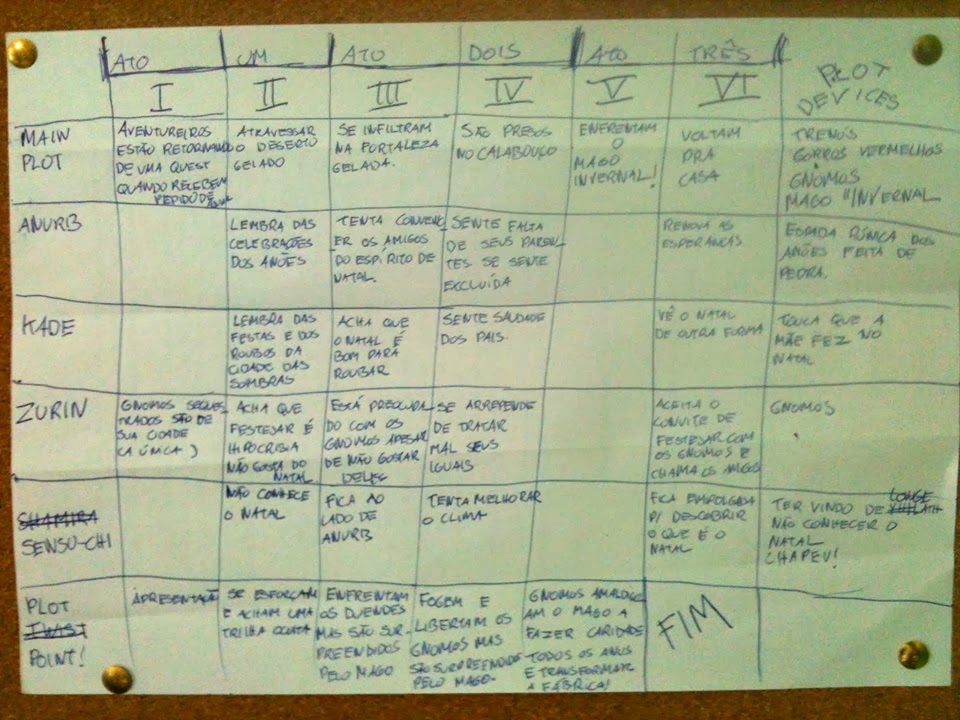 ATO UM ATO DOIS ATO TRÊS
I II III IV V VI PLOT
DEVICES
MAIN
PLOT
AVENTUREIROS
ESTÃO RETORNANDO
DE UMA QUEST
QUANDO RECEBEM
PEDIDO DE
ATRAVESSAR
O DESERTO
GELADO
SE INFILTRAM
NA FORTALEZA
GELADA.
SÃO PRESOS
NO CALABOUÇO
ENFRENTAM
O
MAGO
INVERNAL!
VOLTAM
PRA
CASA
TRENÓS
GORROS VERMELHOS
GNOMOS
MAGO "INVERNAL
ANURB
LEMBRA DAS
CELEBRAÇÕES
DOS ANÕES
TENTA CONVENC
ER OS AMIGOS
DO ESPÍRITO DE
NATAL.
SENTE FALTA
DE SEUS PAREN-
TES SE SENTE
EXCLUÍDA
RENOVA AS
ESPERANÇAS
ESPADA RÚNICA DOS
ANÕES FEITA DE
PEDRA.
KADE
LEMBRA DAS
FESTAS E DOS
ROUBOS DA
CIDADE DAS
SOMBRAS
ACHA QUE
O NATAL É
BOM PARA
ROUBAR
SENTE SAUDADE
DOS PAIS.
VÊ O NATAL
DE OUTRA FORMA
TOUCA QUE A
MÃE FEZ NO
NATAL
ZURIN
GNOMOS SEQUES
TRADOS SÃO DE
SUA CIDADE
(A ÚNICA)
ACHA QUE
FESTEJAR É
HIPOCRISIA
NÃO GOSTA DO
NATAL
ESTÁ PREOCUPA-
DO COM OS
GNOMOS APESAR
DE NÃO GOSTAR
DELES
SE ARREPENDE
DE TRATAR
MAL SEUS
IGUAIS
ACEITA O
CONVITE DE
FESTEJAR COM
OS GNOMOS E
CHAMA OS AMIGOS
GNOMOS
SHAMIRA
SENSU-CHI
NÃO CONHECE
O NATAL
FICA AO
LADO DE
ANURB
TENTA MELHORAR
O CLIMA
FICA EMPOLGADA
P/ DESCOBRIR
O QUE É O
NATAL
LONGE
TER VINDO DE
NÃO CONHECER O
NATAL
CHAPEU!
PLOT
TWIST
POINT!
APRESENTAÇÃO
SE ESFORÇAM
E ACHAM UMA
TRILHA OCULTA
ENFRENTAM
OS DUENDES
MAS SÃO SUR-
PREENDIDOS
PELO MAGO
FOGEM E
LIBERTAM OS
GNOMOS MAS
SÃO SURPREENDIDOS
PELO MAGO.
GNOMOS AMALDIÇO
AM O MAGO A
FAZER CARIDADE
TODOS OS ANOS
E TRANSFORMAR
A FÁBRICA!
FIM